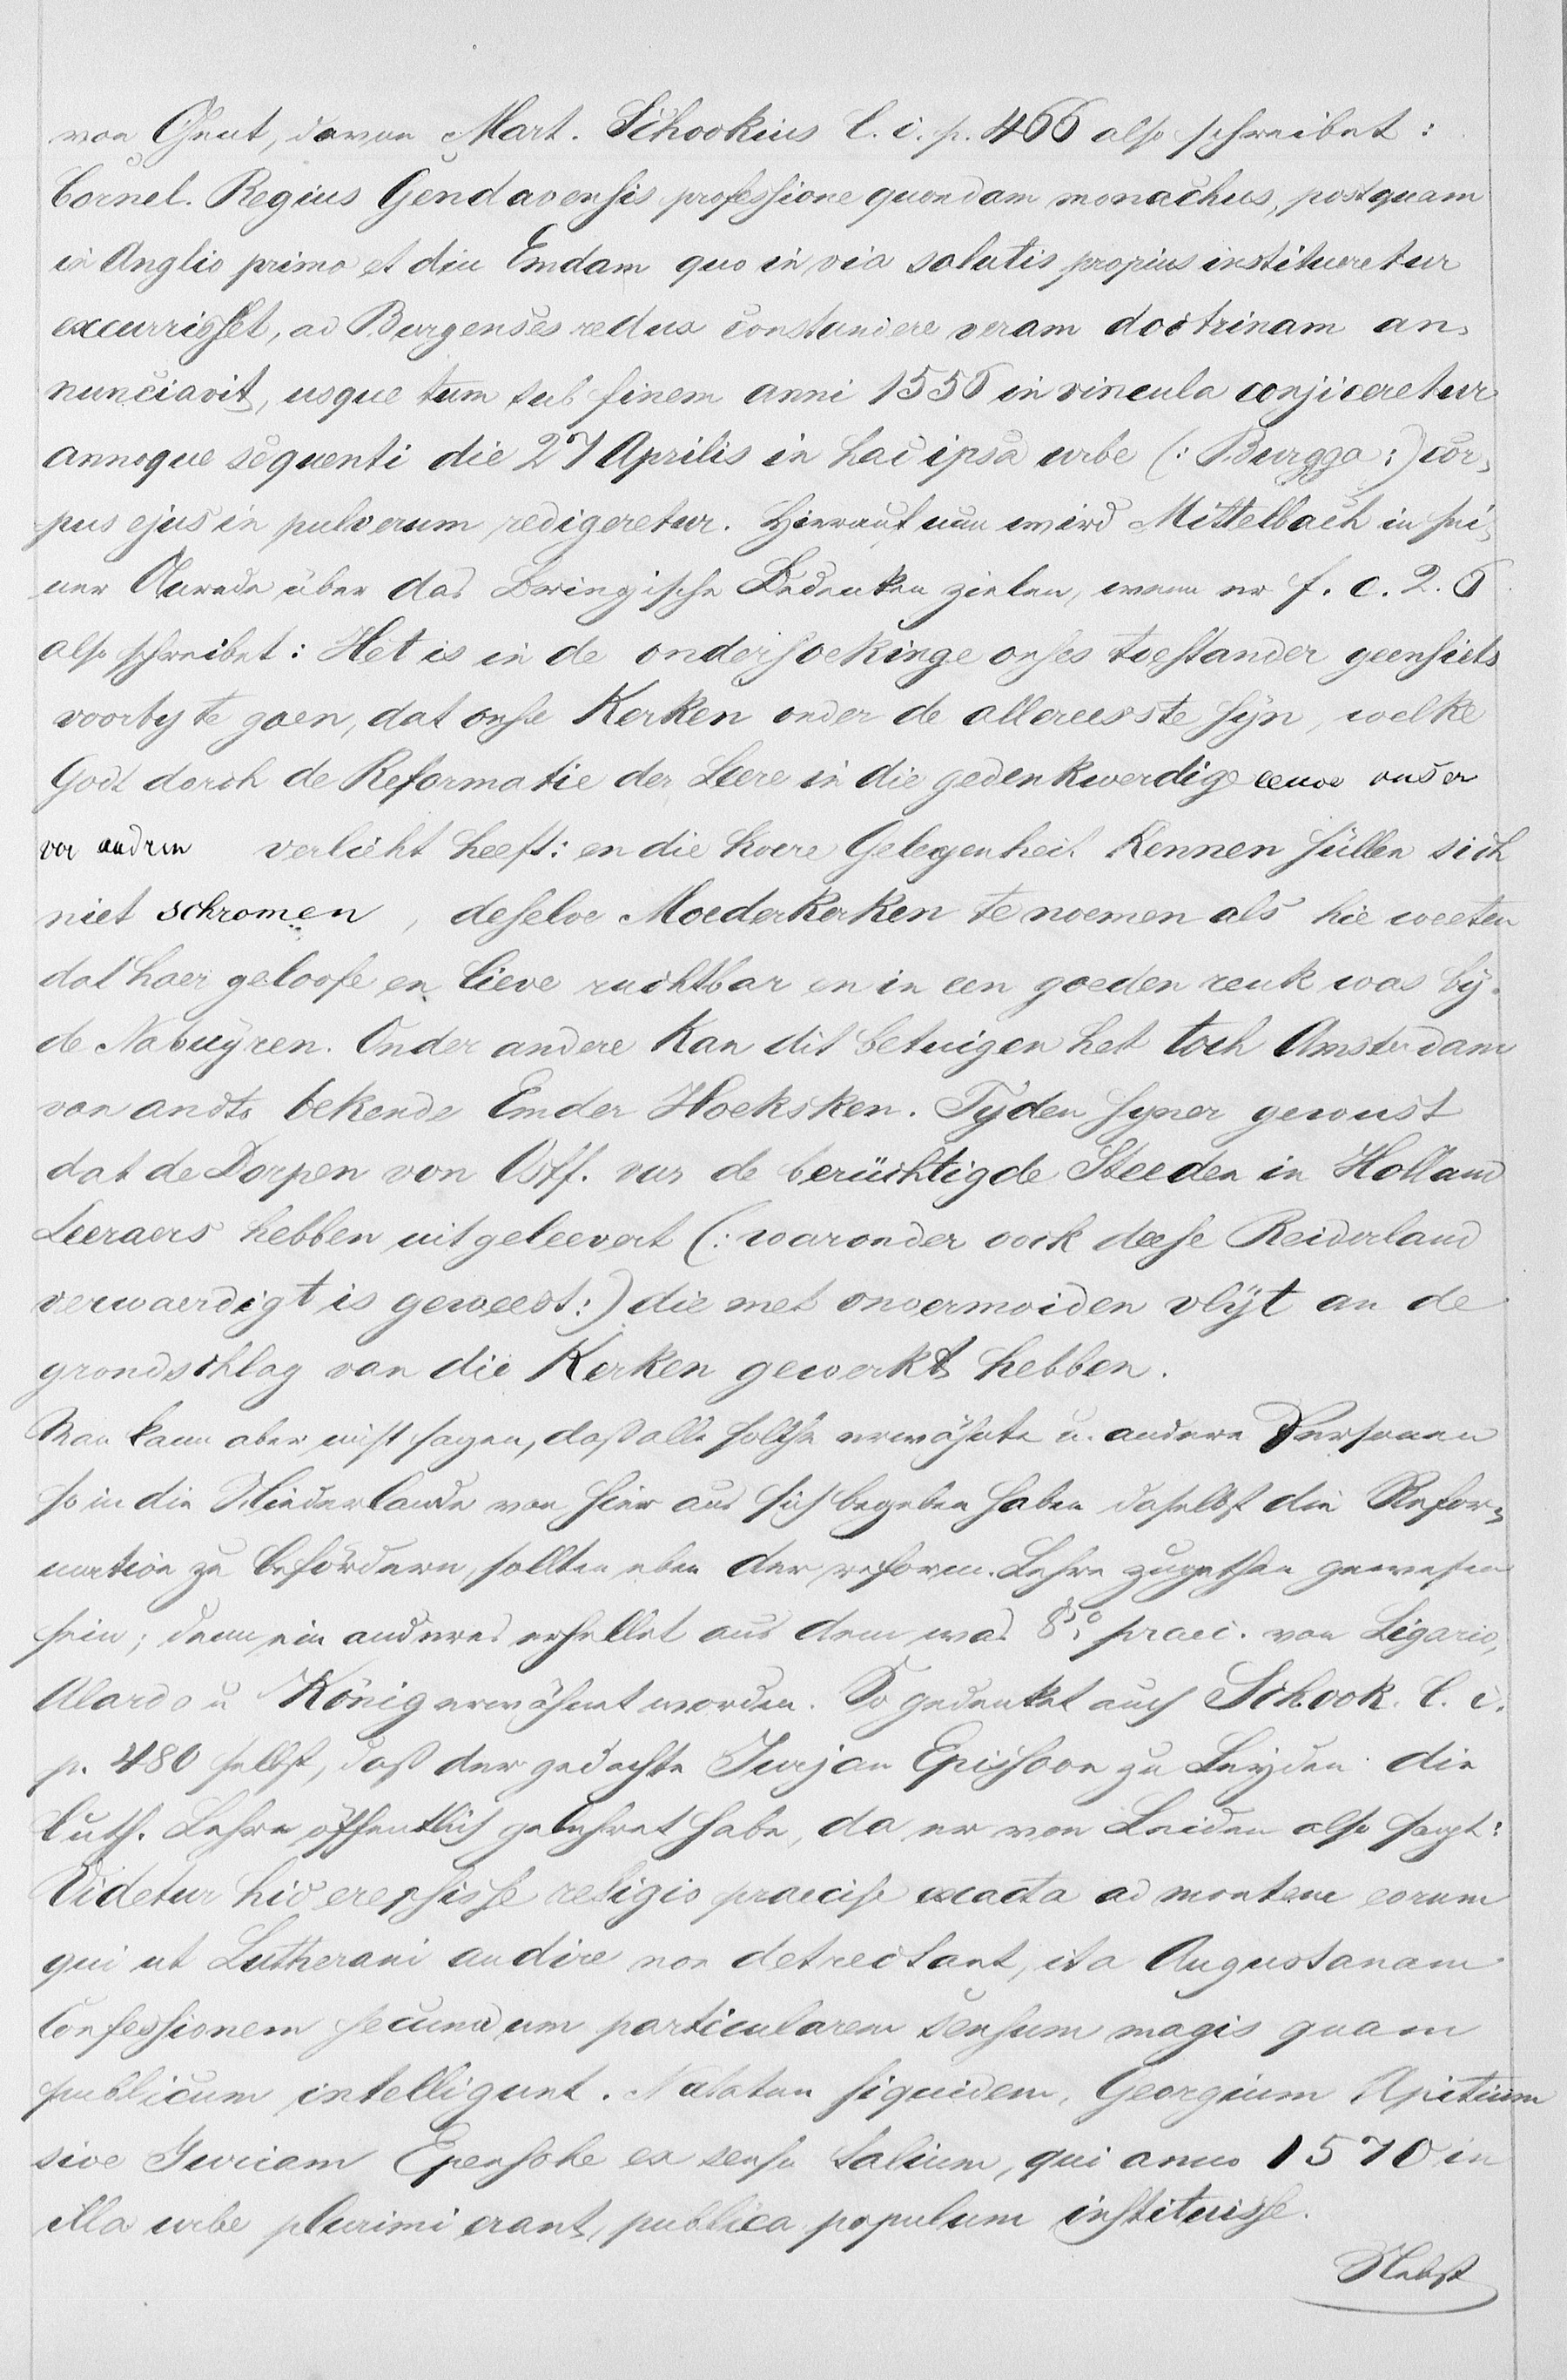 von Gent, davon Mart. Schookius l. c. p. 466 also schreibet:
Cornel. Regius Gendavensis professione quondam monachus, postquam
in Anglio primo et diu Emdam quo in via salutis propius institueretur
excurrisset, ad Burgenses redux constandere veram doctrinam an-
nunciavit, usque tum sub finem anni 1556 in vincula conjiceretur
annoque sequenti die 27 Aprilis in hac ipsa urbe (: Burgga :) cor-
pus ejus in pulverum redigeretur. Hierauf nun wird Mittelbach in sei-
ner Anrede über das Beringische Bedenken zielen, wenn er f. c. 2. 6
also schreibet: Het is in de ondersoekinge onses toestander geensiets
voorby te gaen, dat onse Kerken onder de allereerste syn, welke
Godt dorch de Reformatie der Leere in die gedenkwerdige eeuve onser
vor andren verlicht heeft: en die hoere Gelegenheit Kennen süllen sich
niet schromen, deselve Moederkerken te noemen als hie weeten
dat haer geloofe en lieve ruchtbar en in een goeden reuk was by
de Nabuyren. Onder andere Kan dit betuigen het toch Amsterdam
van andts bekende Emder Hoeksken. Tyden syner gewust
dat de Dorpen von Ostf. vur de berüchtigde Steeden in Holland
Leeraers hebben uitgeleevert (: waronder ook deese Reiderland
verwaerdigt is geweest :) die met onvermoiden vlyt an de
grondschlag van die Kerken gewerkt hebben.
Man kann aber nicht sagen, daß alle solche erwähnte u. andere Personen
so in die Niederlande von hier aus sich begeben haben daselbst die Refor-
mation zu befördern, sollten eben der reform. Lehre zugethan gewesen
sein; denn ein anderes erhellet aus dem was § praec. von Ligario,
Alardo u König erwähnet worden. So gedenket auch Schook. l. c.
p. 480 selbst, daß der gedachte Jurjan Epissoon zu Leyden die
luth. Lehre öffentlich gelehret habe, da er von Leiden also sagt:
Videtur hic erepsisse religio praecise exacta ad montem eorum
qui ut Lutherani audire non detrectant, ita Augustanam
Confessionem secundum particularem sensum magis quam
publicum intelligunt. Natatan siquidem, Georgium Apitium
sive Juriam Epensohe ex sensu talium, qui anno 1570 in
illa urbe plurimi erant, publica populum instituisse.
Nebst